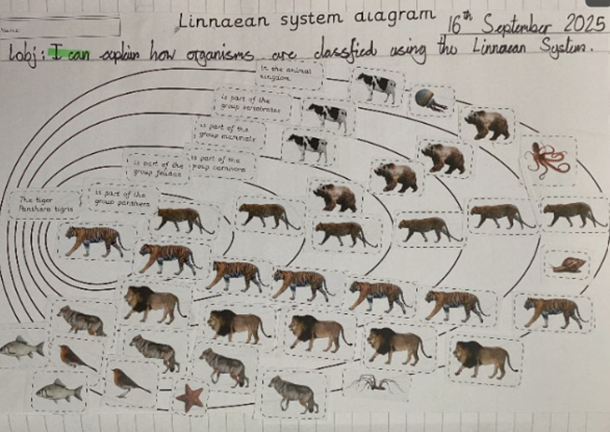 Name:
Linnaean system diagram
16th September 2025
Lobj: I can explain how organisms are classfied using the Linnaean System.
In the animal
kingdom
is part of the
group vertebrates
is part of the
group mammals
is part of the
group carnivora
is part of the
group felidae
is part of the
group panthera
The tiger
Panthera tigris